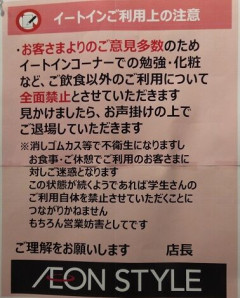 イートインご利用上の注意
・お客さまよりのご意見多数のため
イートインコーナーでの勉強・化粧
など、ご飲食以外のご利用について
全面禁止とさせていただきます
見かけましたら、お声掛けの上で
ご退場していただきます
※消しゴムカス等で不衛生になりますし
お食事・ご休憩でご利用のお客さまに
対しご迷惑となります
この状態が続くようであれば学生さんの
ご利用自体を禁止させていただくことに
つながりかねません
もちろん営業妨害としてです
ご理解をお願いします 店長
ÆON STYLE